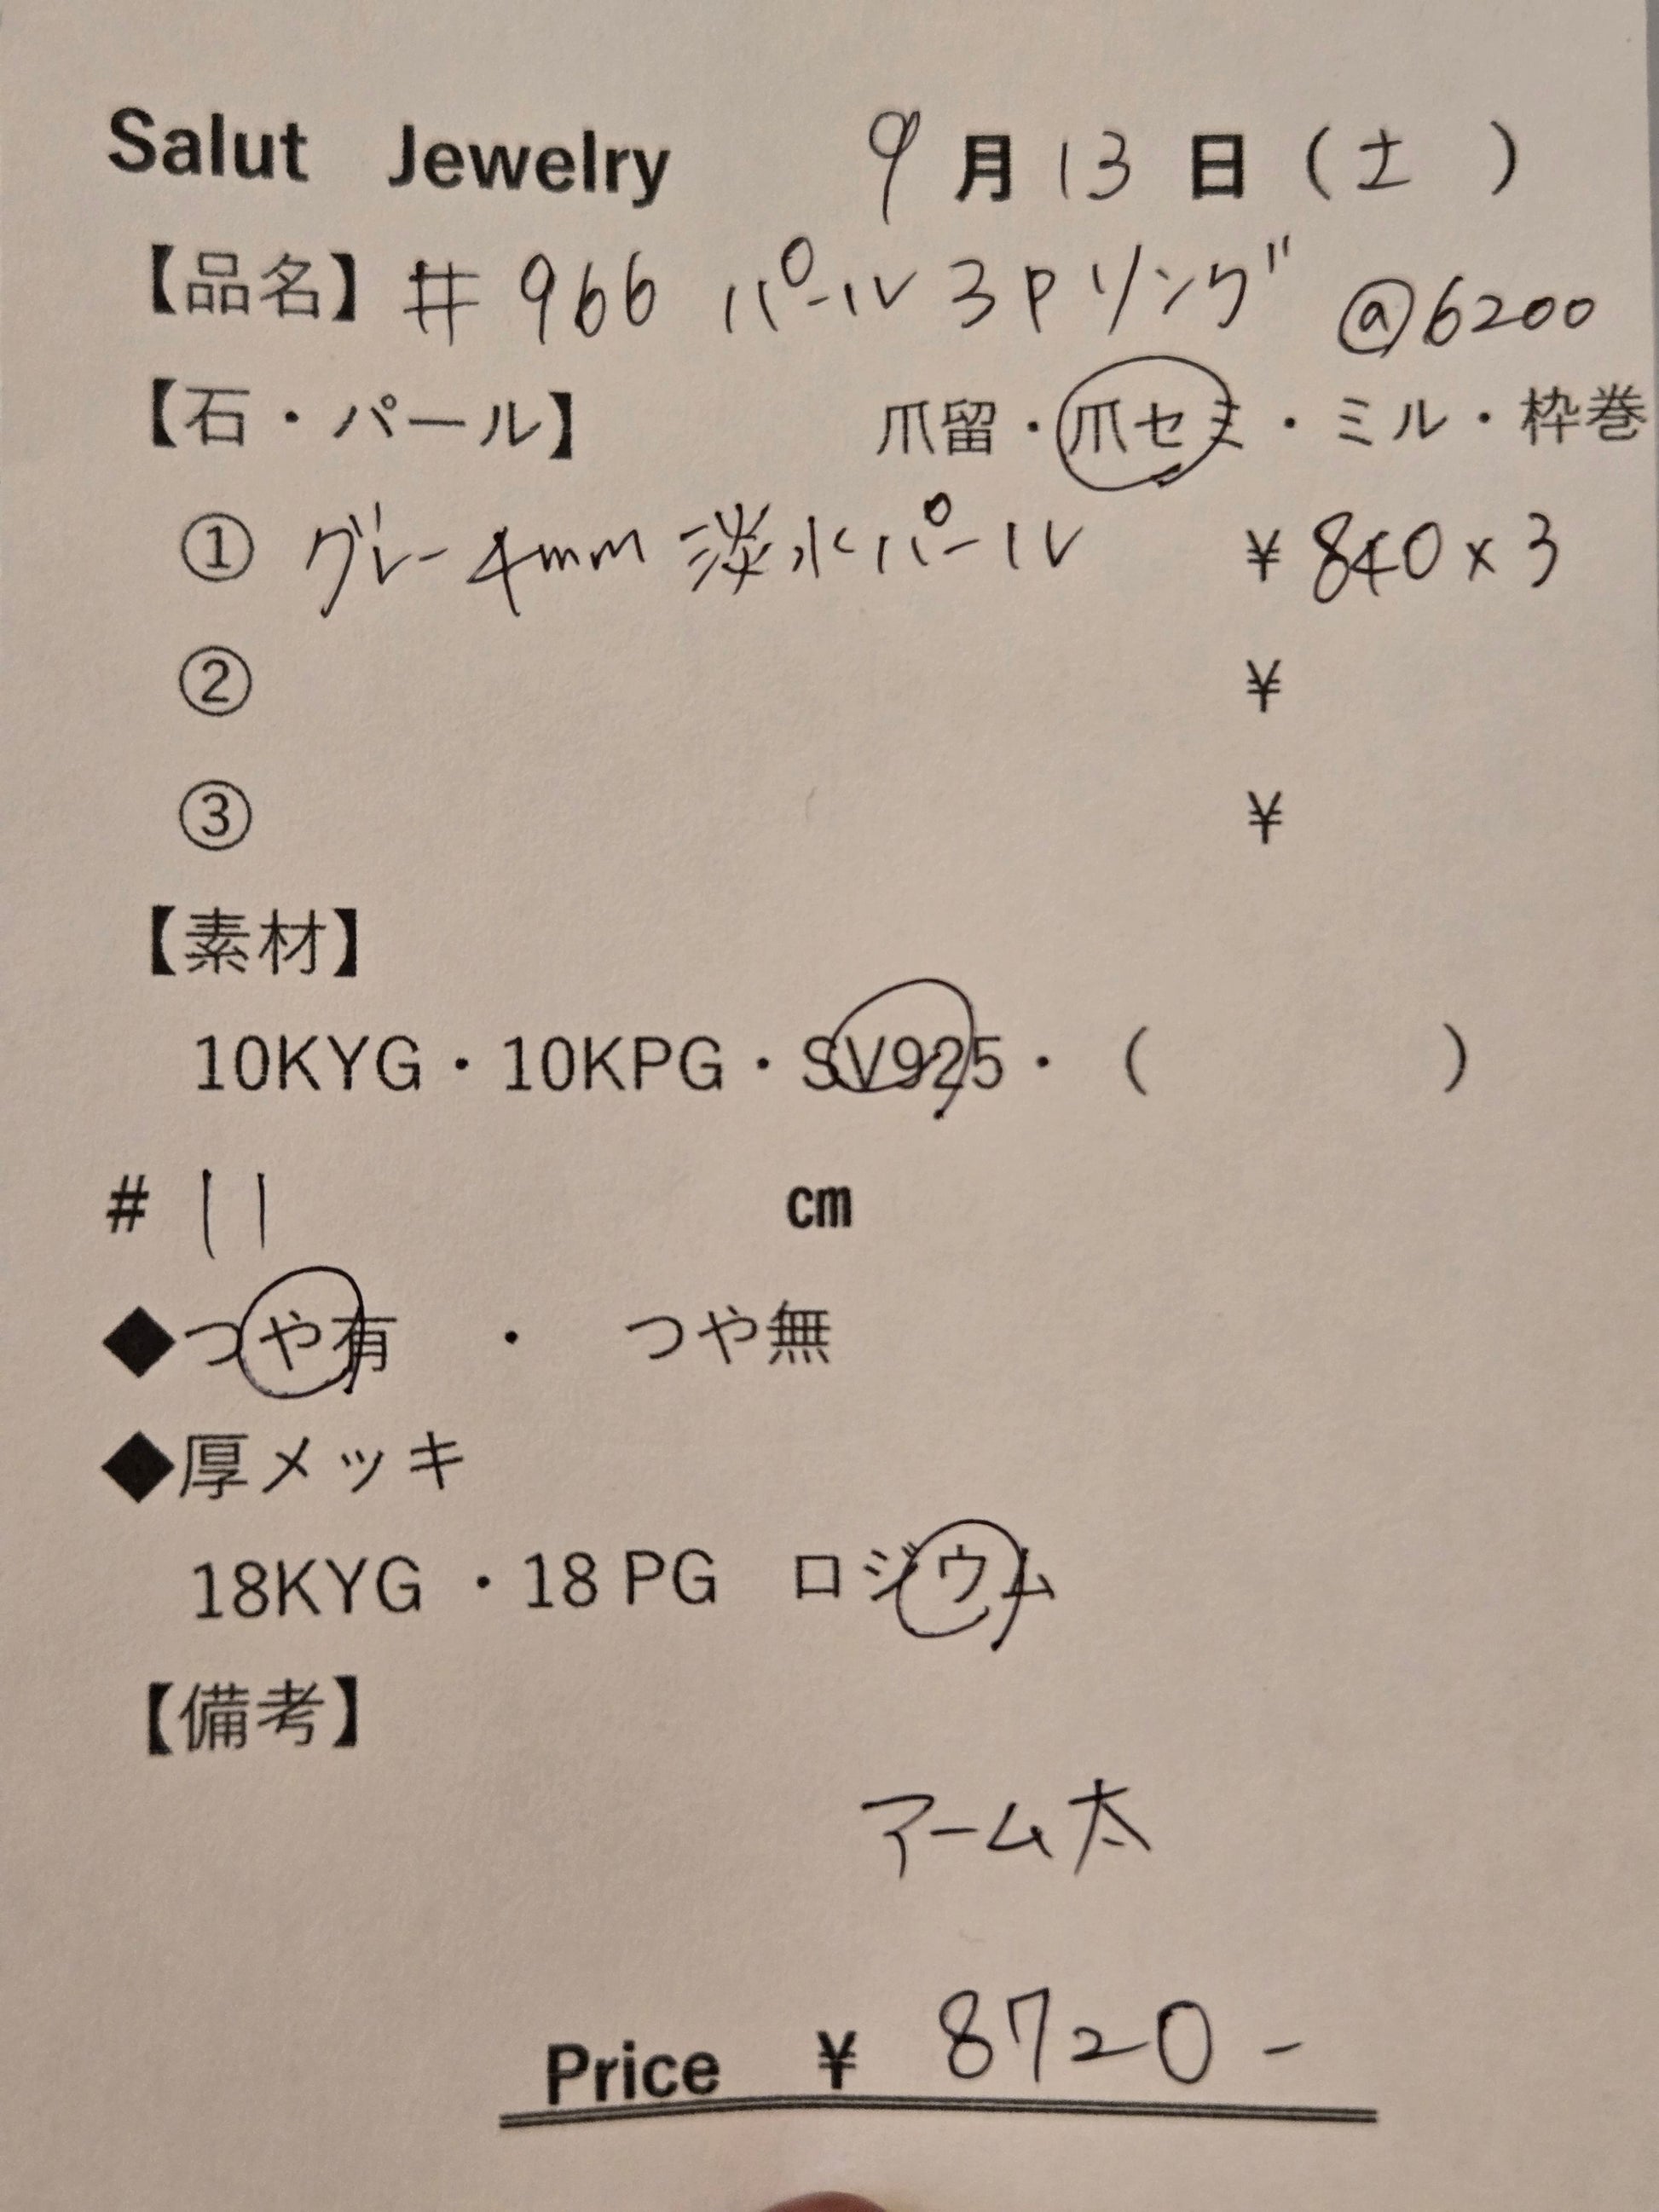 Salut Jewelry 9月13日(土 )
【品名】# 966 パール3Pリング @6200
【石・パール】 爪留・爪セミ・ミル・枠巻
① グレー4mm淡水パール ¥840×3
② ¥
③ ¥
【素材】
10KYG・10KPG・SV925・( )
# 11 cm
◆つや有 ・ つや無
◆厚メッキ
18KYG ・18 PG ロジウム
【備考】
アーム太
Price ¥ 8720-